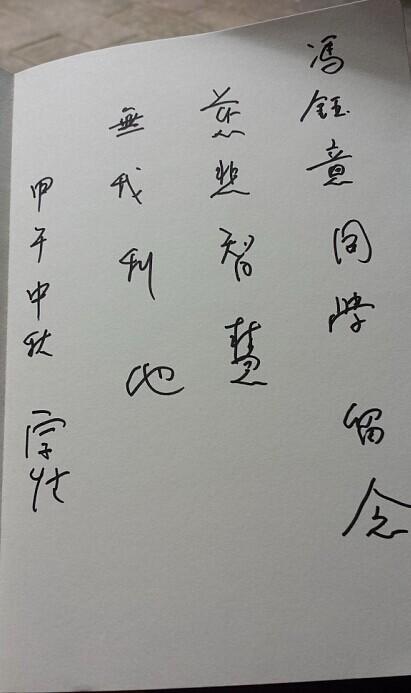 馮鈺意同学留念
慈悲智慧
無我利他
甲午中秋 宗性